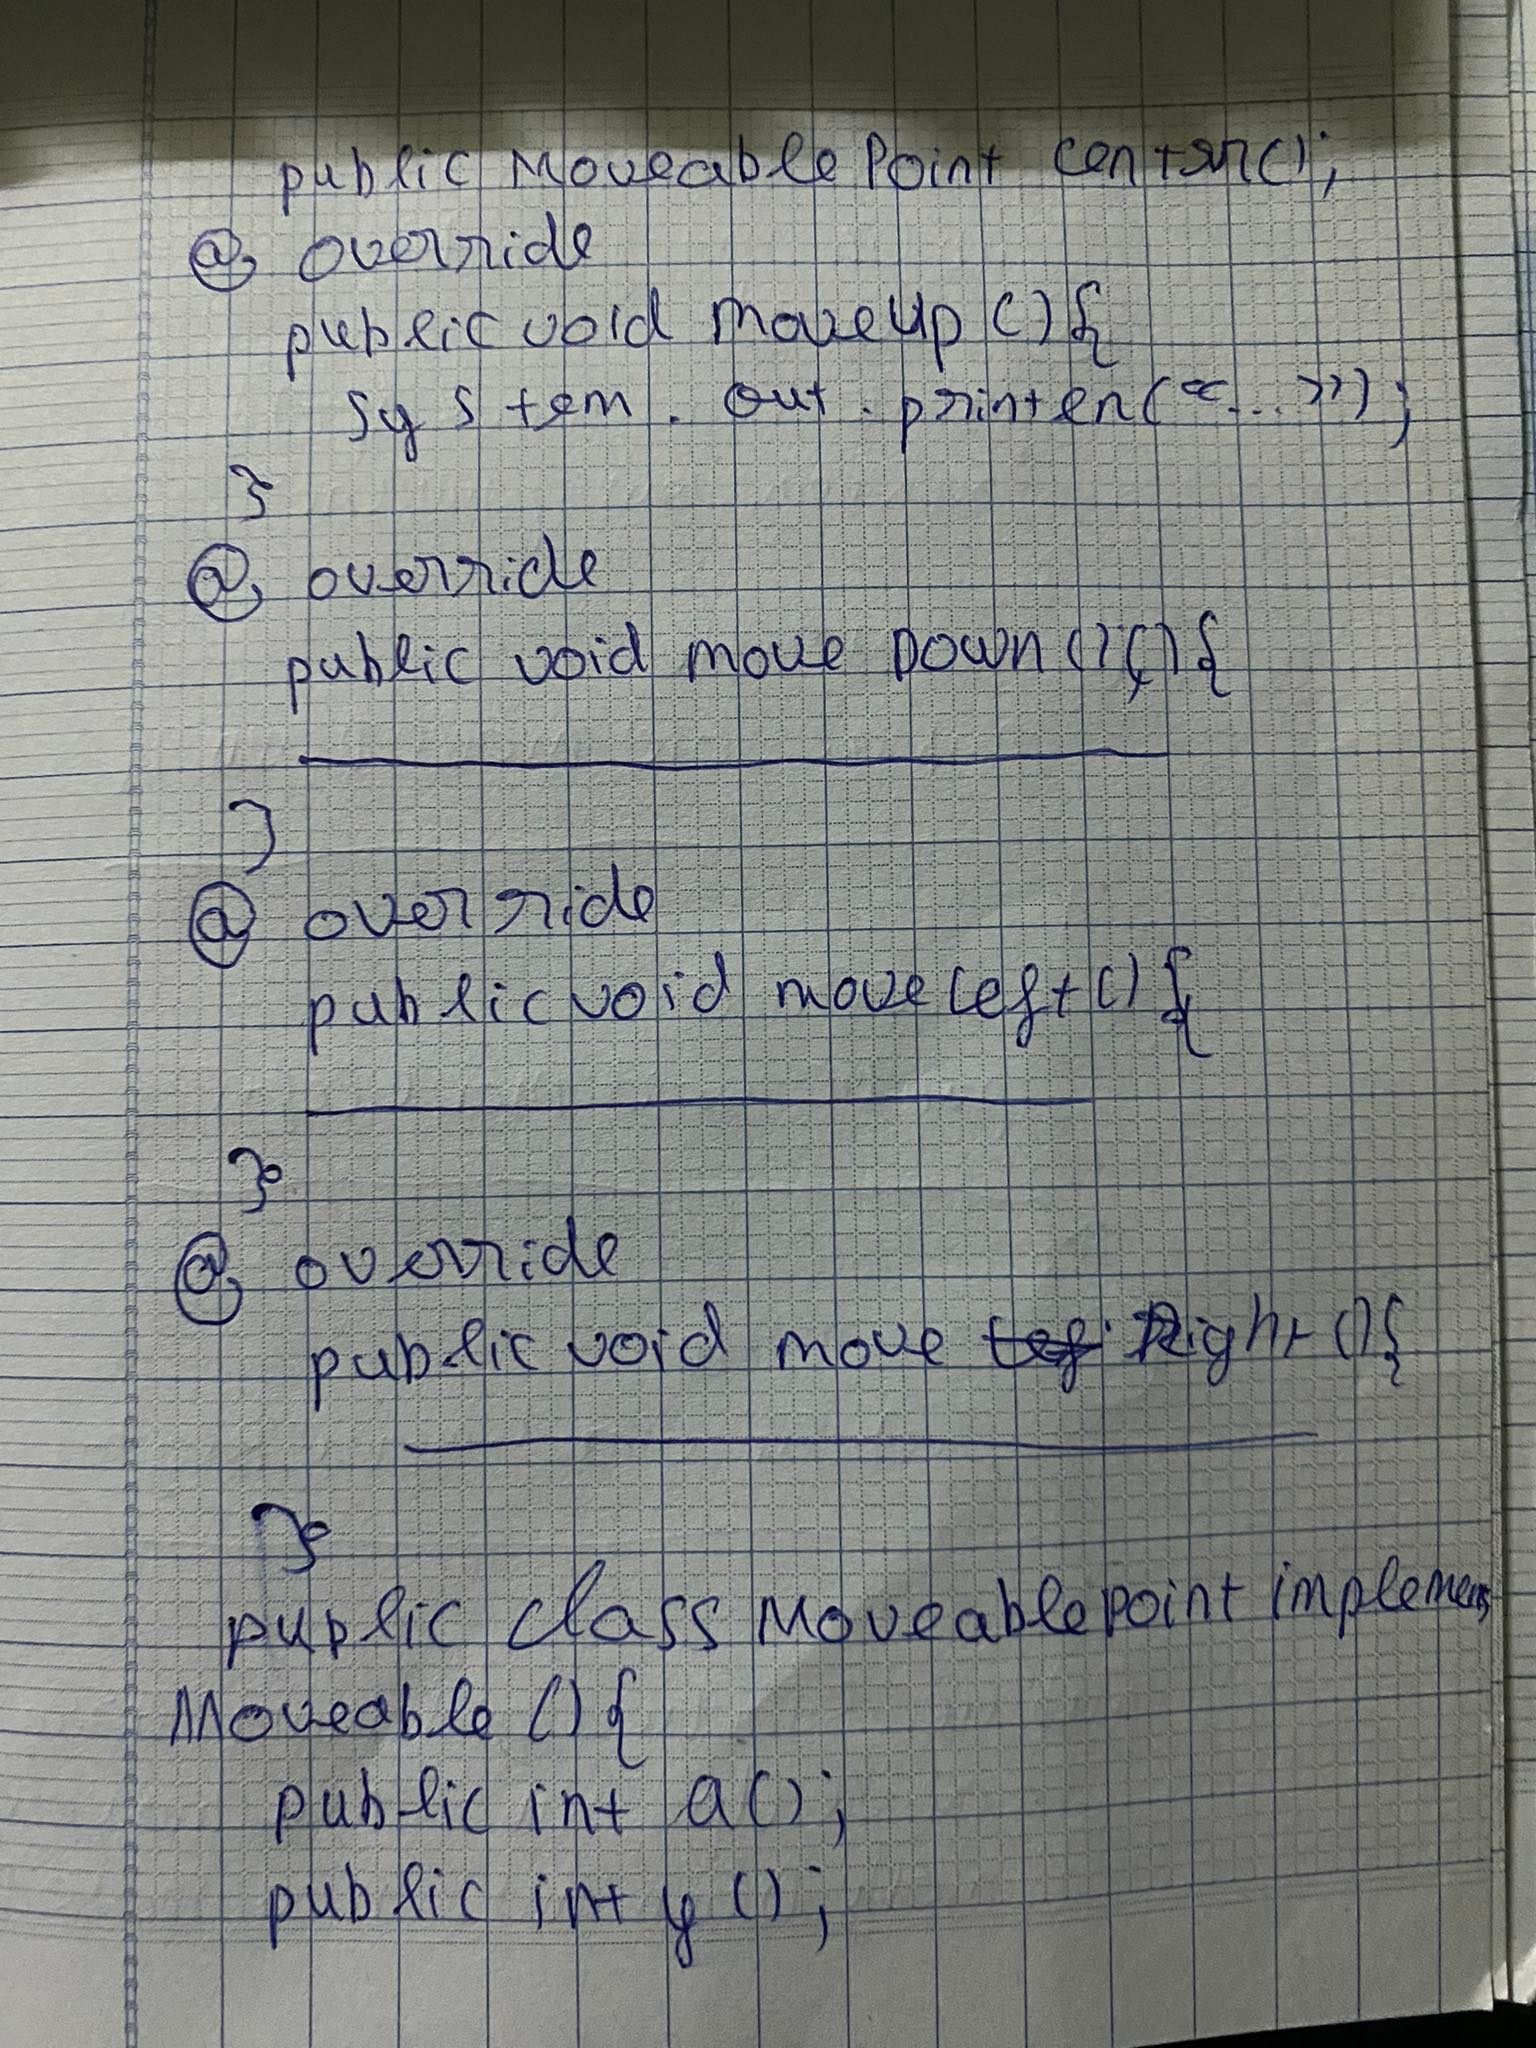 public Moveable Point center();
@ override
public void moveup () {
system . out . println("...");
}
@ override
public void move Down () {
}
@ override
public void move left () {
}
@ override
public void move Right () {
}
public class Moveablepoint implements
Moveable () {
public int a();
public int y();